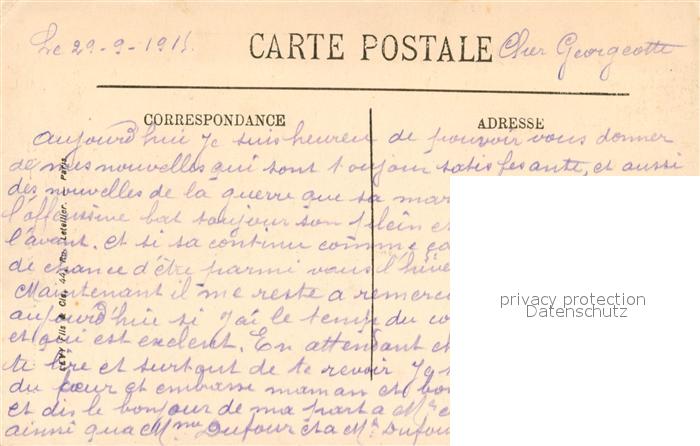 Le 29-9-1915.
CARTE POSTALE
Cher Georgeotte
CORRESPONDANCE
ADRESSE
aujourd'hui Je suis heureu de pouvoir vous donner
de mes nouvelles qui sont toujour satisfesante, et aussi
des nouvelles de la guerre que sa mar
l'offensine bat toujour son plein et
l'avant. et si sa continu comme ça
de chance d'être parmi vous l'hive
Maintenant il me reste a remerci
aujourd'hui si j'ai le temp du co
et qui est exelent. En attendant et
te lire et surtout de te revoir Je
du cœur et embasse maman et bon
et dis le bonjour de ma part a Mr
ainsi qua Mme Dufour et a Mr Dufou
LEVY Fils & Cie, 44, Rue Letellier. — Paris
privacy protection
Datenschutz